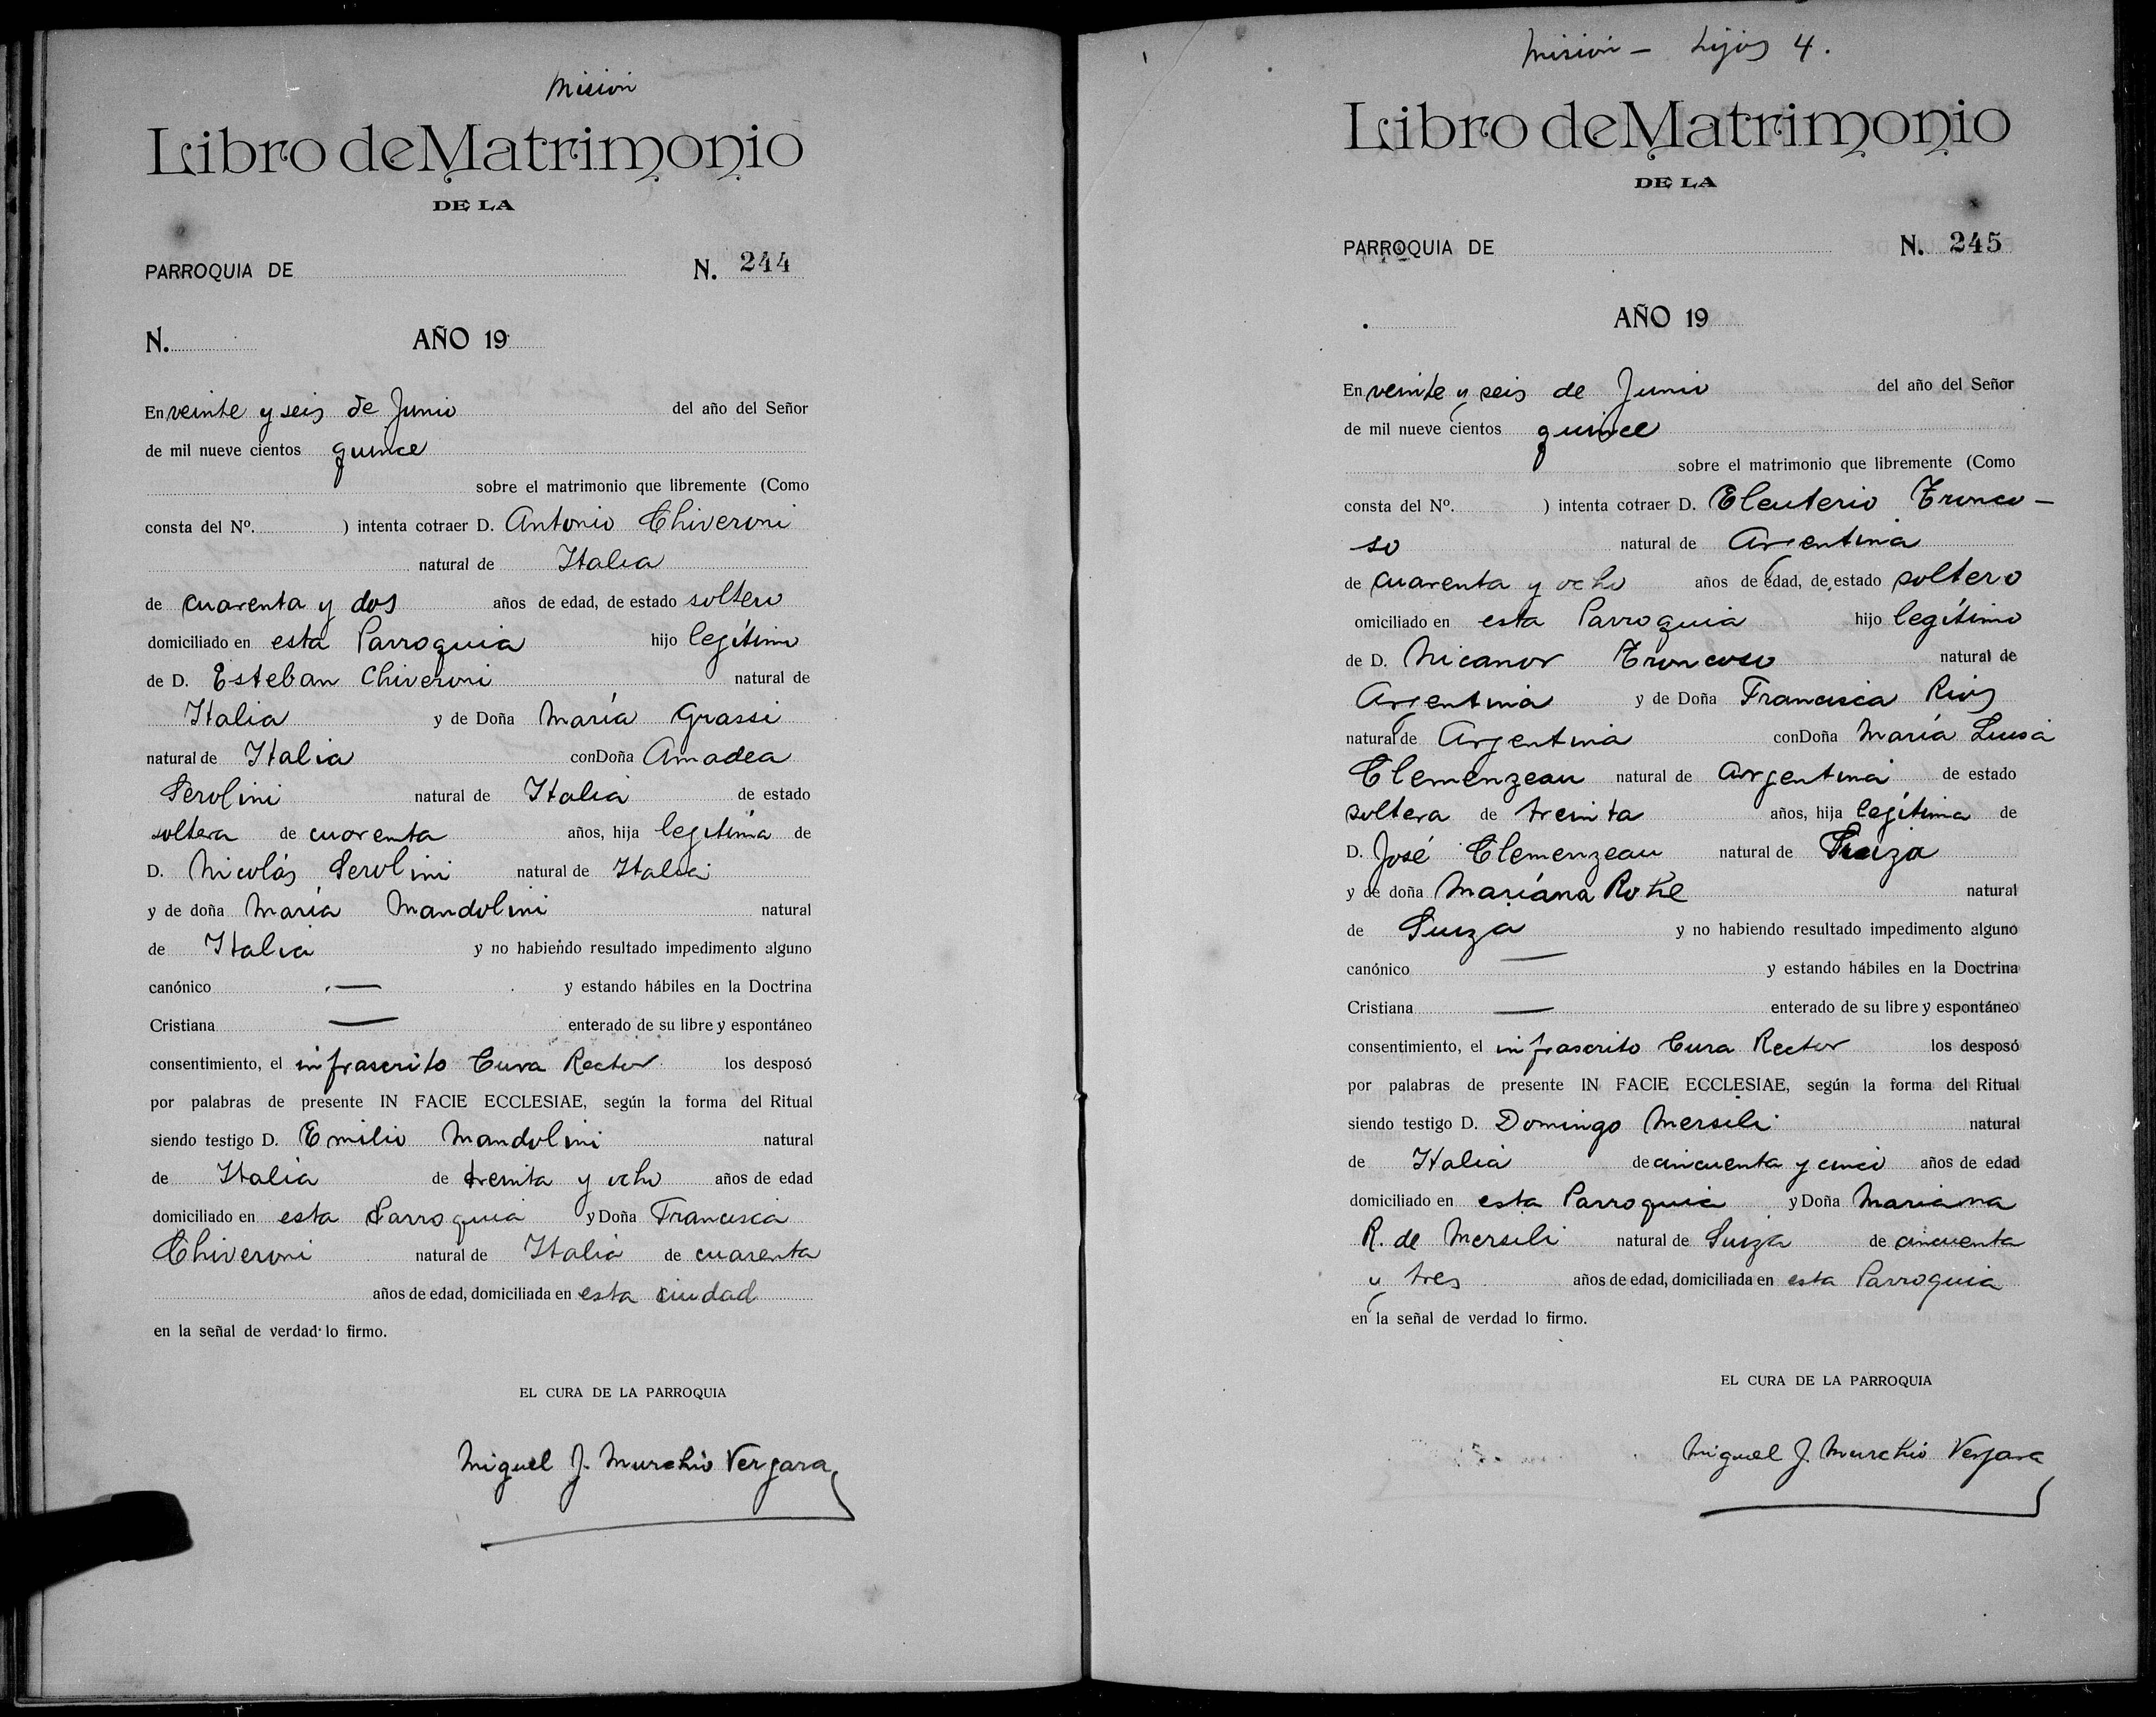 Misión
Libro de Matrimonio
DE LA
PARROQUIA DE N. 244
N. AÑO 19
En veinte y seis de Junio del año del Señor
de mil nueve cientos quince
sobre el matrimonio que libremente (Como
consta del Nº. ) intenta cotraer D. Antonio Chiveroni
natural de Italia
de cuarenta y dos años de edad, de estado soltero
domiciliado en esta Parroquia hijo legítimo
de D. Esteban Chiveroni natural de
Italia y de Doña María Grassi
natural de Italia con Doña Amadea
Serolini natural de Italia de estado
soltera de cuarenta años, hija legítima de
D. Nicolás Serolini natural de Italia
y de doña María Mandolini natural
de Italia y no habiendo resultado impedimento alguno
canónico — y estando hábiles en la Doctrina
Cristiana — enterado de su libre y espontáneo
consentimiento, el infrascrito Cura Rector los desposó
por palabras de presente IN FACIE ECCLESIAE, según la forma del Ritual
siendo testigo D. Emilio Mandolini natural
de Italia de treinta y ocho años de edad
domiciliado en esta Parroquia y Doña Francisca
Chiveroni natural de Italia de cuarenta
años de edad, domiciliada en esta ciudad
en la señal de verdad lo firmo.
EL CURA DE LA PARROQUIA
Miguel J. Murchio Vergara
Misión — hijos 4.
Libro de Matrimonio
DE LA
PARROQUIA DE N. 245
AÑO 19
En veinte y seis de Junio del año del Señor
de mil nueve cientos quince
sobre el matrimonio que libremente (Como
consta del Nº. ) intenta cotraer D. Eleuterio Tronco-
so natural de Argentina
de cuarenta y ocho años de edad, de estado soltero
omiciliado en esta Parroquia hijo legítimo
de D. Nicanor Troncoso natural de
Argentina y de Doña Francisca Rios
natural de Argentina con Doña María Luisa
Clemenzeau natural de Argentina de estado
soltera de treinta años, hija legítima de
D. José Clemenzeau natural de Suiza
y de doña Mariana Rohe natural
de Suiza y no habiendo resultado impedimento alguno
canónico — y estando hábiles en la Doctrina
Cristiana — enterado de su libre y espontáneo
consentimiento, el infrascrito Cura Rector los desposó
por palabras de presente IN FACIE ECCLESIAE, según la forma del Ritual
siendo testigo D. Domingo Mersili natural
de Italia de cincuenta y cinco años de edad
domiciliado en esta Parroquia y Doña Mariana
R. de Mersili natural de Suiza de cincuenta
y tres años de edad, domiciliada en esta Parroquia
en la señal de verdad lo firmo.
EL CURA DE LA PARROQUIA
Miguel J. Murchio Vergara